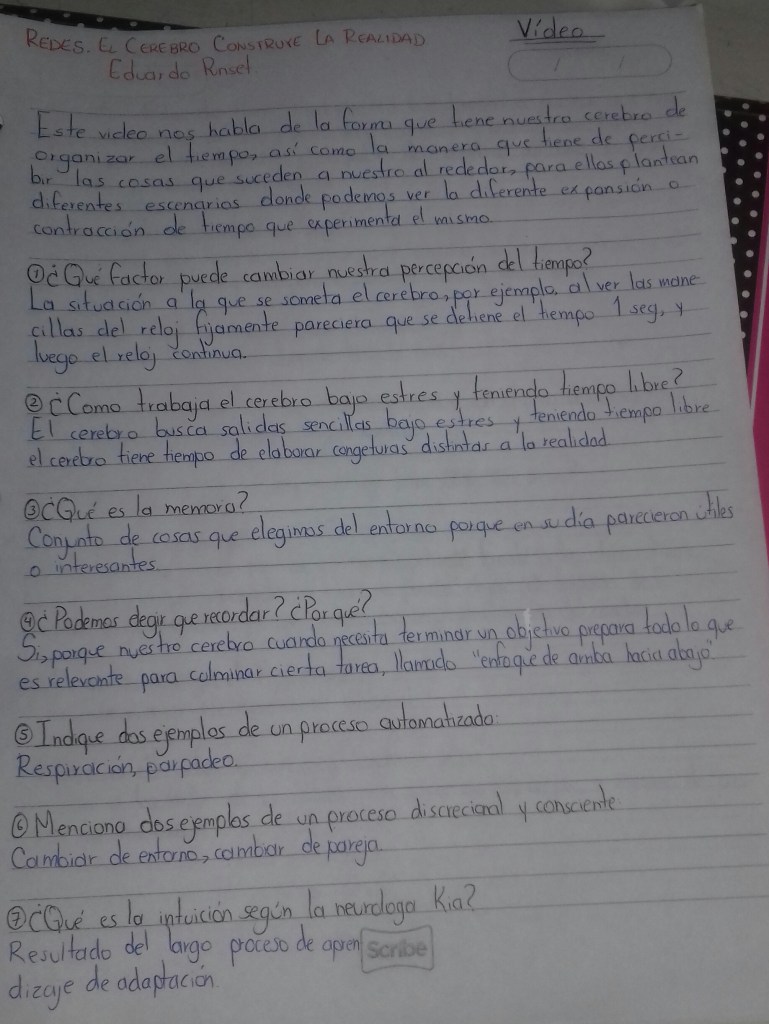 Video
REDES. EL CEREBRO CONSTRUYE LA REALIDAD
Eduardo Punset
Este video nos habla de la forma que tiene nuestro cerebro de
organizar el tiempo, así como la manera que tiene de perci-
bir las cosas que suceden a nuestro al rededor, para ellos plantean
diferentes escenarios donde podemos ver la diferente expansión o
contracción de tiempo que experimenta el mismo.
① ¿Qué factor puede cambiar nuestra percepción del tiempo?
La situación a la que se someta el cerebro, por ejemplo, al ver las mane
cillas del reloj fijamente pareciera que se detiene el tiempo 1 seg, y
luego el reloj continua.
② ¿Como trabaja el cerebro bajo estres y teniendo tiempo libre?
El cerebro busca salidas sencillas bajo estres y teniendo tiempo libre
el cerebro tiene tiempo de elaborar congeturas distintas a la realidad
③ ¿Qué es la memoria?
Conjunto de cosas que elegimos del entorno porque en su día parecieron útiles
o interesantes.
④ ¿Podemos elegir que recordar? ¿Por qué?
Si, porque nuestro cerebro cuando necesita terminar un objetivo prepara todo lo que
es relevante para culminar cierta tarea, llamado "enfoque de arriba hacia abajo"
⑤ Indique dos ejemplos de un proceso automatizado:
Respiración, parpadeo.
⑥ Menciona dos ejemplos de un proceso discrecional y consciente
Cambiar de entorno, cambiar de pareja.
⑦ ¿Qué es la intuición según la neurologa Kia?
Resultado del largo proceso de apren Scribe
dizaje de adaptación.